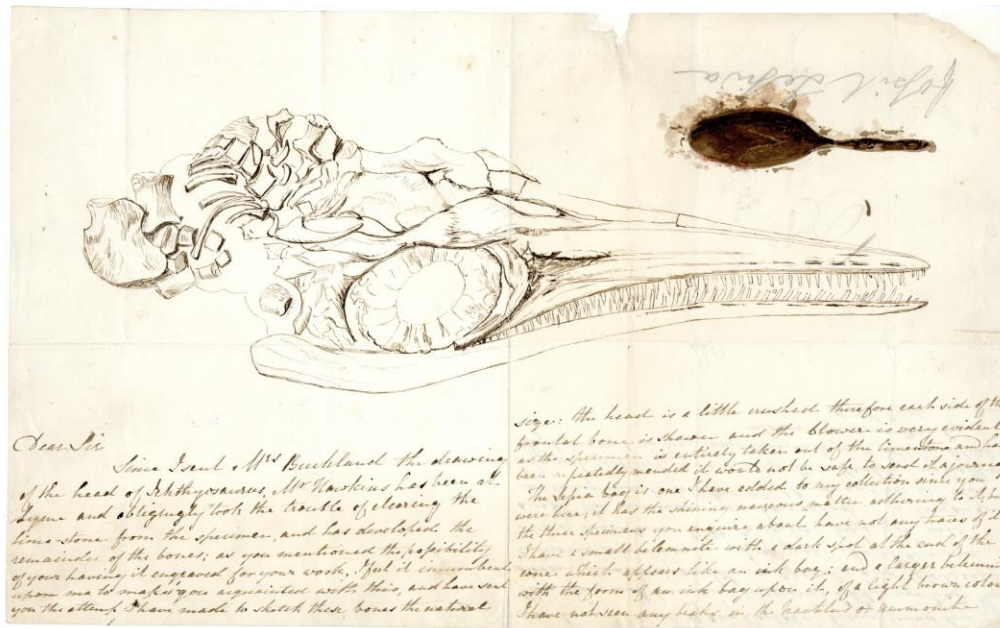 fossil Sepia
Dear Sir
Since I sent Mrs Buckland the drawing
of the head of Ichthyosaurus, Mr Hawkins has been at
Lyme and obligingly took the trouble of clearing the
lime-stone from the specimen, and has developed the
remainder of the bones; as you mentioned the possibility
of your having it engraved for your work, I feel it incumbent
upon me to make you acquainted with this, and have sent
you the attempt I have made to sketch these bones the natural
size: the head is a little crushed therefore each side of the
frontal bone is shewn and the blower is very evident
as the specimen is entirely taken out of the limestone and has
been repeatedly mended it would not be safe to send it a journey
The Sepia bag is one I have added to my collection since you
were here; it has the shining nacrous matter adhering to it, but
the three specimens you enquire about have not any traces of it
I have a small belemnite with a dark spot at the end of the
cone which appears like an ink bag; and a larger belemnite
with the form of an ink bag upon it, of a light brown colour
I have not seen any beaks in the Nautilus or ammonite